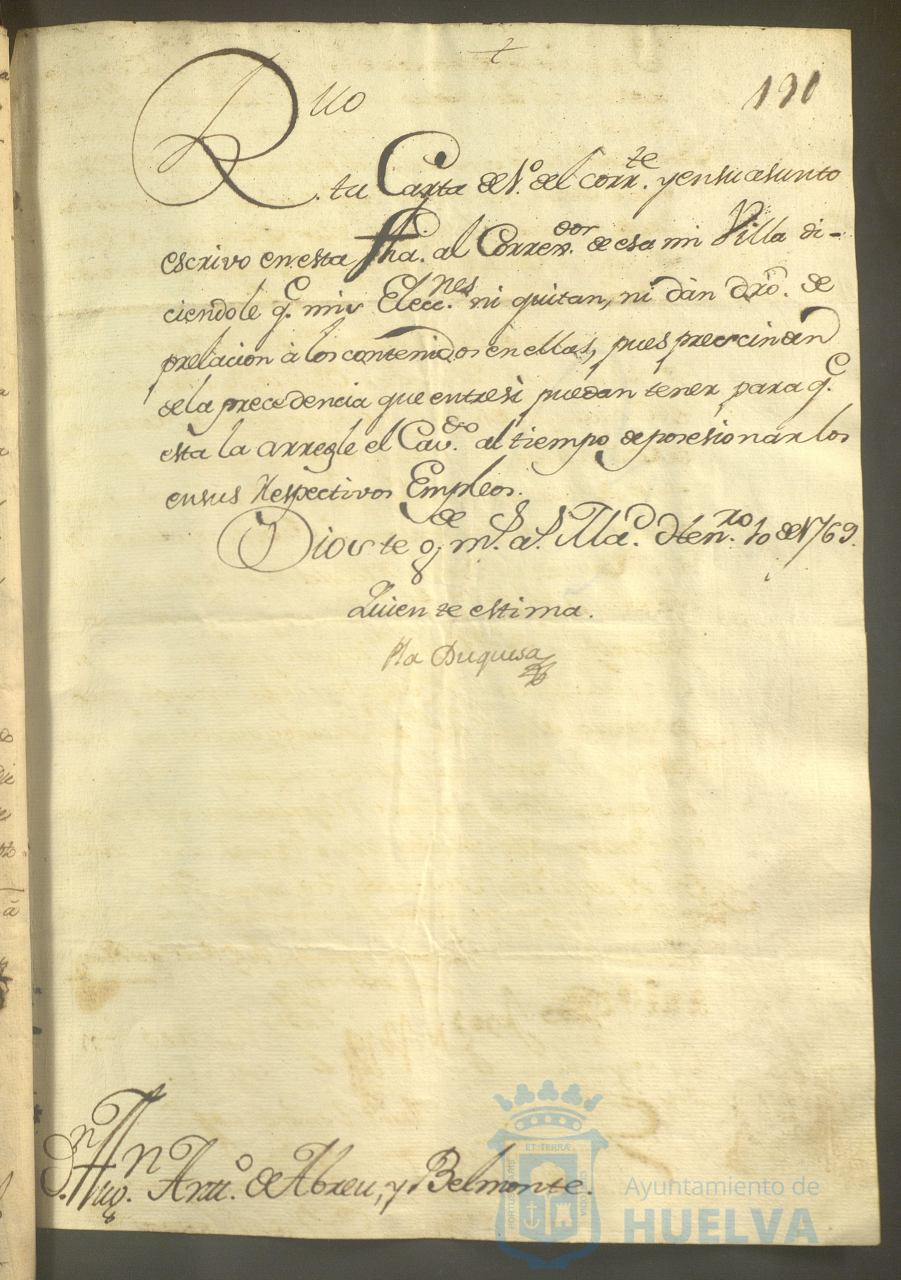 130
Rvo
tu Carta de 1º. del corr.te y en su asunto
escrivo en esta fha. al Corre.dor de esa mi Villa di-
ciendole q.e mis Elecc.nes ni quitan, ni dàn dro. de
prelacion à los contenidos en ellas, pues prescinden
de la precedencia que entre sì puedan tener para q.e
esta la arregle el Cav.do al tiempo de posesionar los
en sus Respectivos Empleos.
Dios te g.de m.s a.s Mad.d de En.ro 10 de 1769.
Quien te estima.
La Duquesa
D.n Ant.o de Abreu, y Belmonte.
ET TERRÆ
Ayuntamiento de
HUELVA